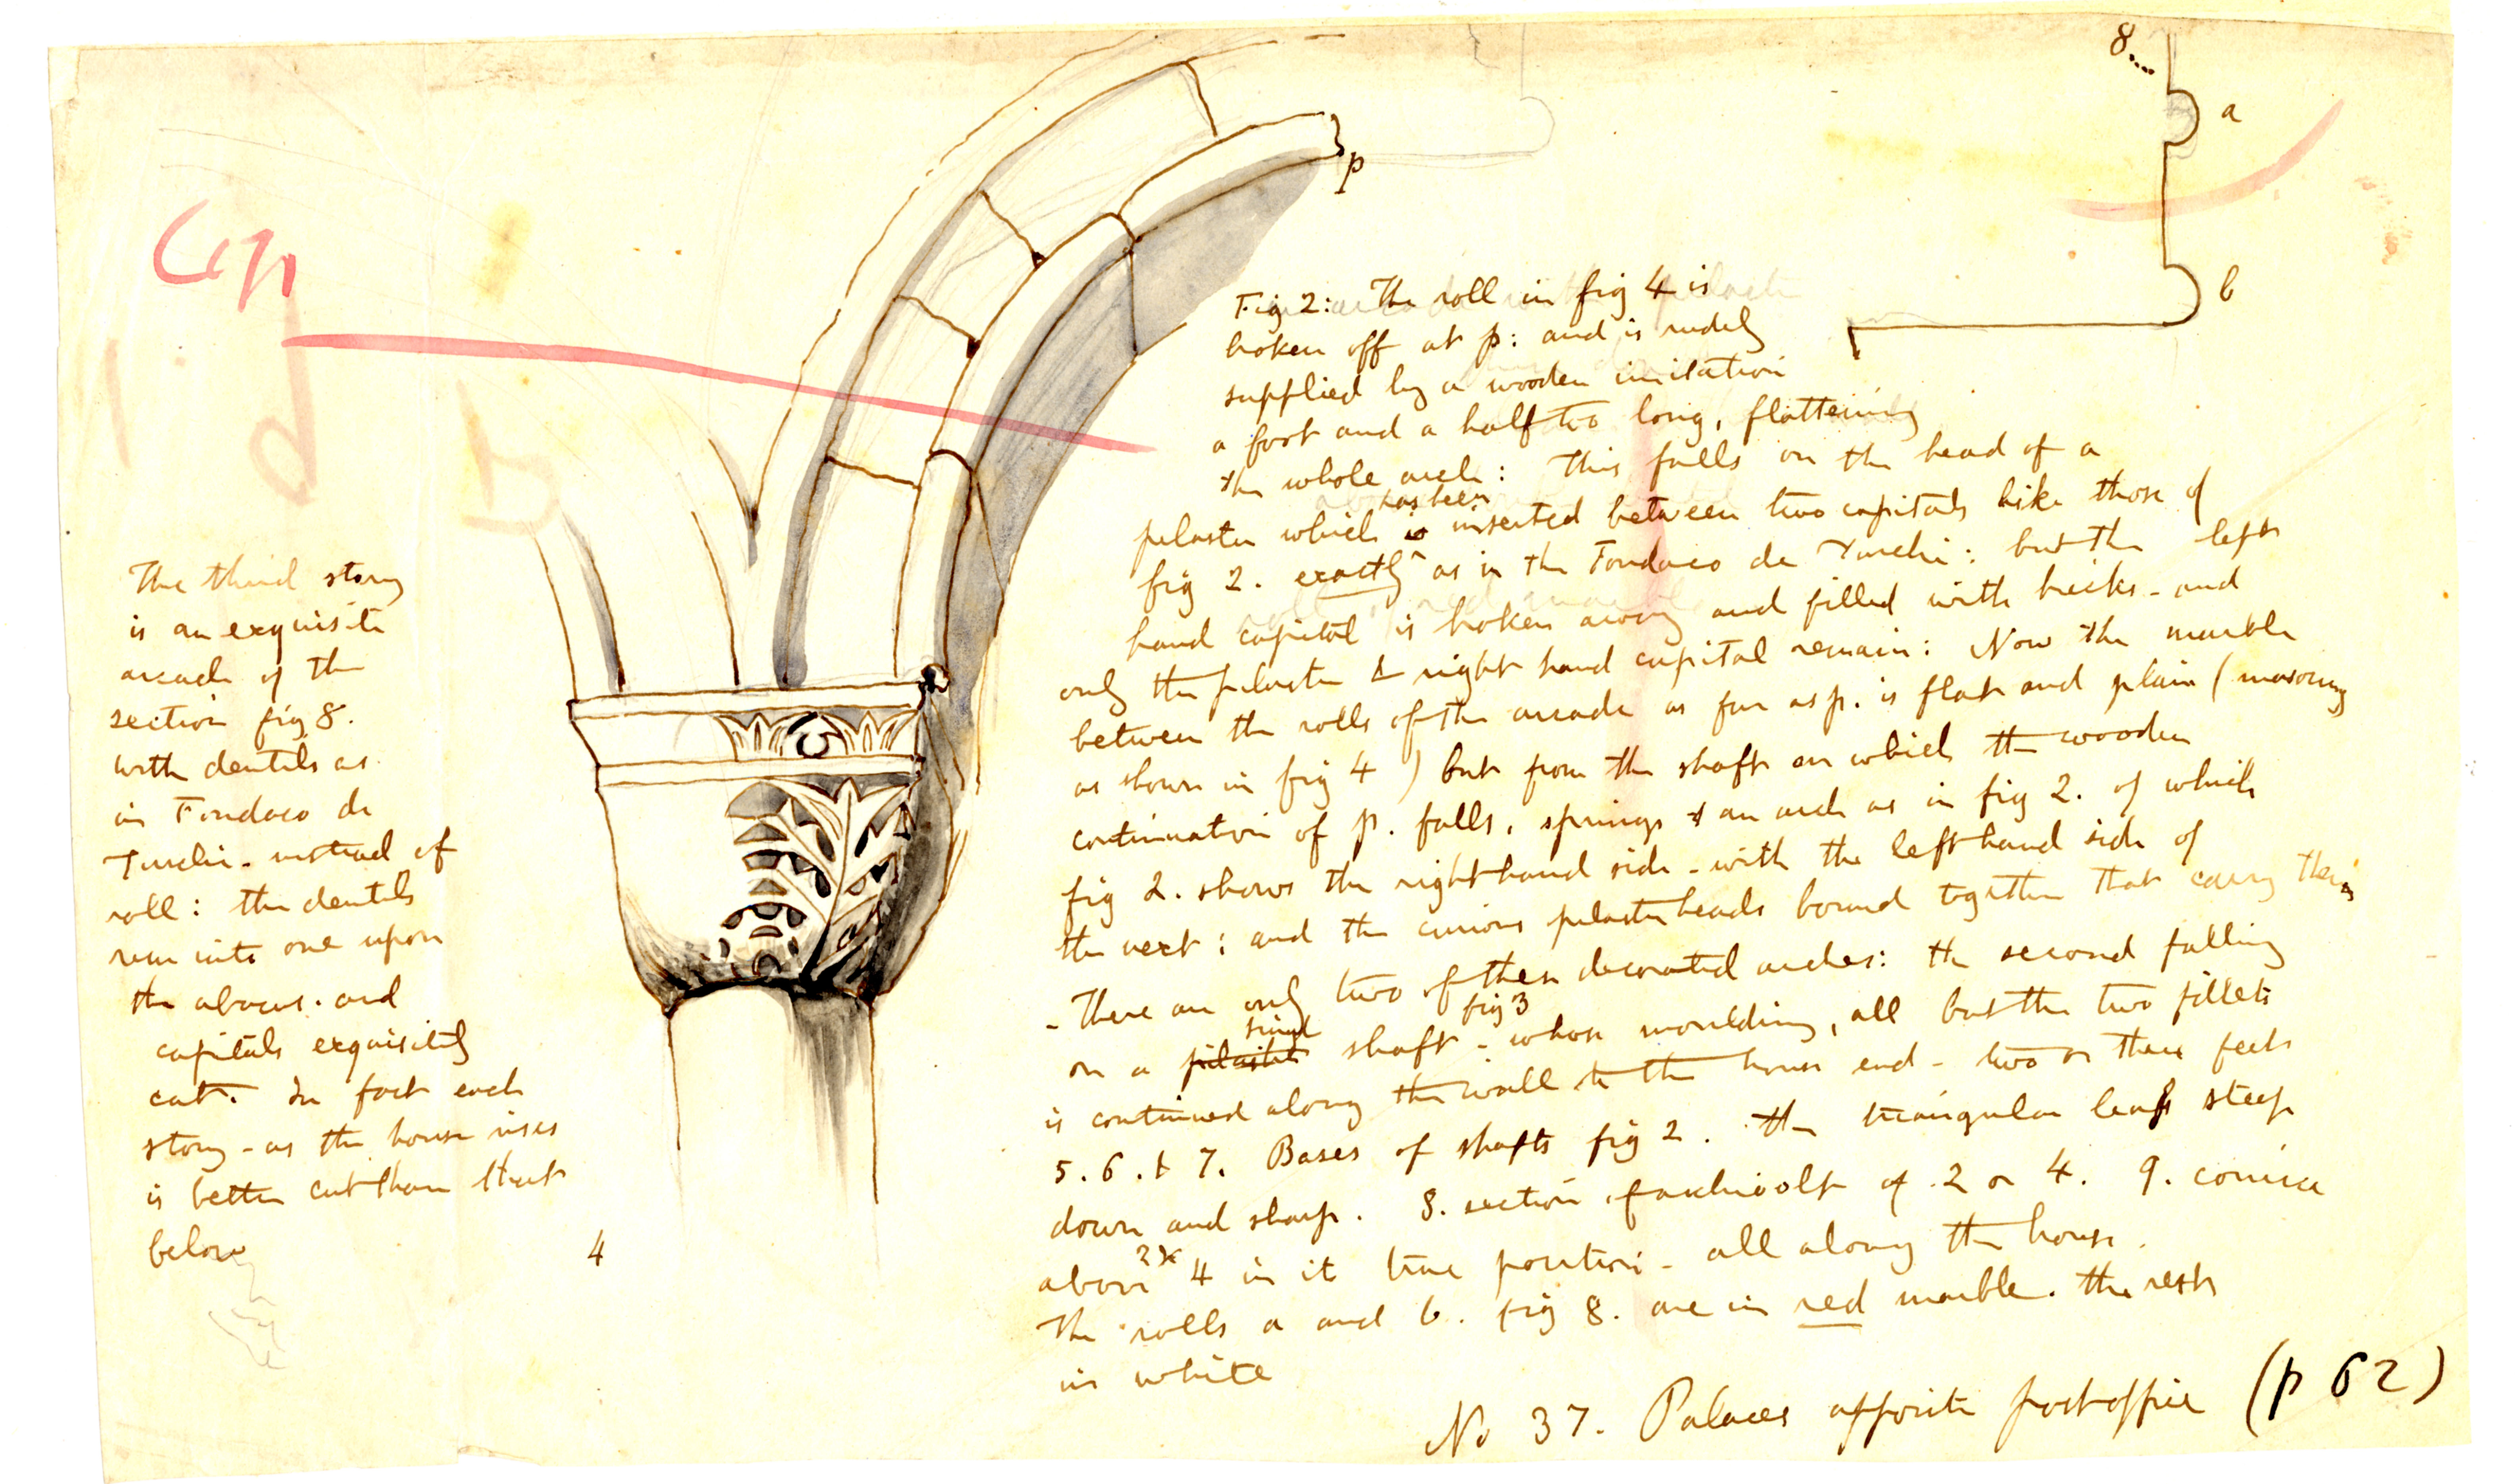 8...
a
b
p
Cap
Fig 2: The roll in fig 4 is
broken off at p: and is rudely
supplied by a wooden imitation
a foot and a half too long, flattening
the whole arch: This falls on the head of a
has been
pilaster which is inserted between two capitals like those of
fig 2. exactly as in the Fondaco de Turchi: but the left
hand capital is broken away and filled with bricks - and
only the pilaster & right hand capital remain: Now the marble
between the rolls of the arcade as far as p. is flat and plain (masonry
as shown in fig 4) but from the shaft on which the wooden
continuation of p. falls, springs an arch as in fig 2. of which
fig 2. shows the right hand side - with the left hand side of
the next; and the curious pilaster heads bound together that carry them
- There are only two of these decorated arches: the second falling
single fig 3
on a pilaster shaft - whose moulding, all but the two fillets
is continued along the wall to the house end - two or three feet
5. 6. & 7. Bases of shafts fig 2. the triangular leafs steep
down and sharp. 8. section of archivolt of 2 or 4. 9. cornice
above 2 4 in it true position - all along the house.
The rolls a and b. fig 8. are in red marble. the rest
in white
No 37. Palaces opposite post office (p 62)
The third story
is an exquisite
arcade of the
section fig 8.
with dentils as
in Fondaco de
Turchi - instead of
roll: the dentils
run into one upon
the abacus. and
capitals exquisitely
cut. In fact each
story - as the house rises
is better cut than that
below
4